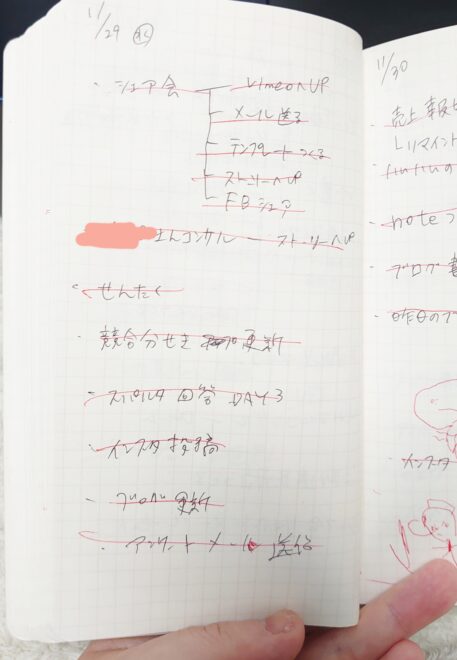 11/29 ㊌
・シェア会
VimeoへUP
メール送る
テンプレートつくる
ストーリーへUP
FBシェア
さんコンサル ー ストーリーへUP
・せんたく
・競合分せき 更新
・スパルタ回答 DAY3
・インスタ投稿
・ブログ更新
・アンケートメール送信
11/30
・売上報
リマインド
・note
・ブログ
・昨日の
・インスタ